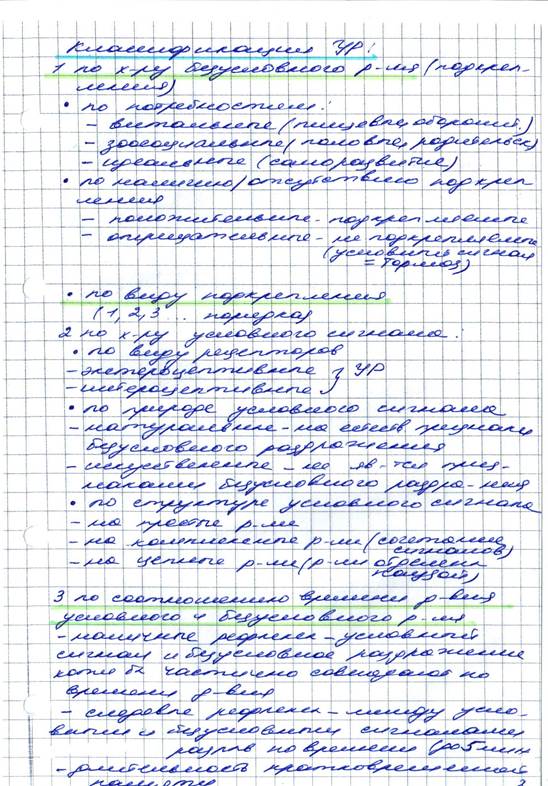 Классификация УР:
1 по х-ру безусловного р-ля (подкреп-
ления)
• по потребностям:
- витальные (пищевые, оборонит.)
- зоосоциальные (половые, родительск)
- идеальные (саморазвитие)
• по наличию/отсутствию подкреп
ления
- положительные - подкрепляемые
- отрицательные - не подкрепляемые
(условный сигнал
= тормоз)
• по виду подкрепления
(1, 2, 3 .. порядка)
2 по х-ру условного сигнала:
• по виду рецепторов
- экстероцептивные } УР
- интероцептивные
• по природе условного сигнала
- натуральные - на естеств признаки
безусловного раздражения
- искусственные - не яв-тся приз-
наками безусловного раздра-ния
• по структуре условного сигнала
- на простые р-ли
- на комплексные р-ли (сочетание
сигналов)
- на цепные р-ли (р-ли
паузой)
3 по соотношению времени д-вия
условного и безусловного р-ля
- наличные рефлекс - условный
сигнал и безусловное раздражение
хотя бы частично совпадают по
времени д-вия
- следовые рефлекс - между усло-
вными и безусловными сигналами
разрыв по времени (до 5 мин
- длительность кратковременной
памяти